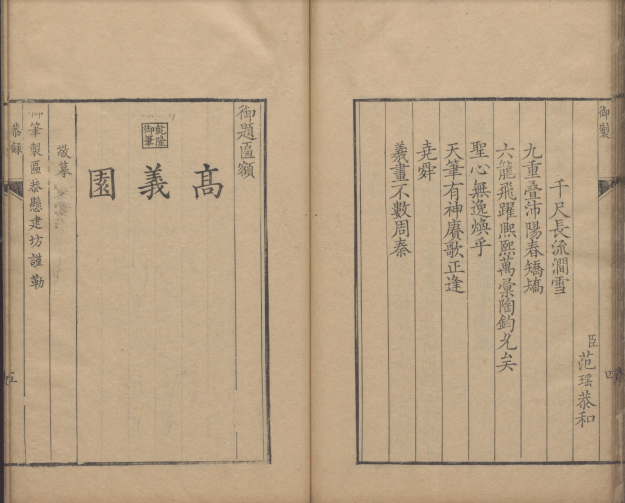 御製
四
臣范瑶恭和
千尺長流澗雪
九重疊沛陽春矯矯
六龍飛躍熙熙萬彙陶鈞允矣
聖心無逸煥乎
天筆有神賡歌正逢
堯舜
羲畫不數周秦
御題匾額
乾隆御筆
髙義園
敬摹
御筆製匾恭懸建坊謹勒
恭録
五